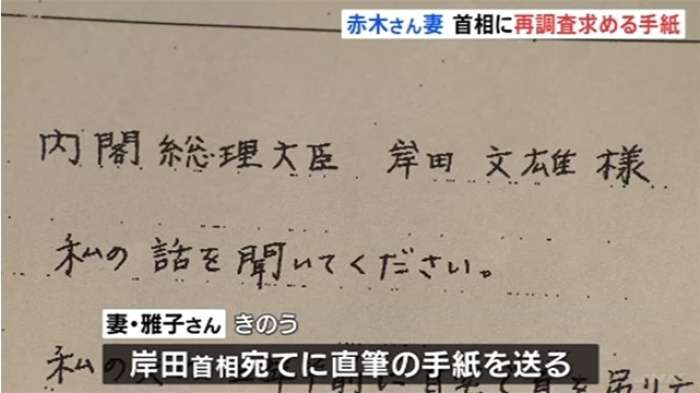 赤木さん妻 首相に再調査求める手紙
内閣総理大臣 岸田 文雄 様
私の話を聞いてください。
妻・雅子さん きのう
岸田首相宛てに直筆の手紙を送る
私の